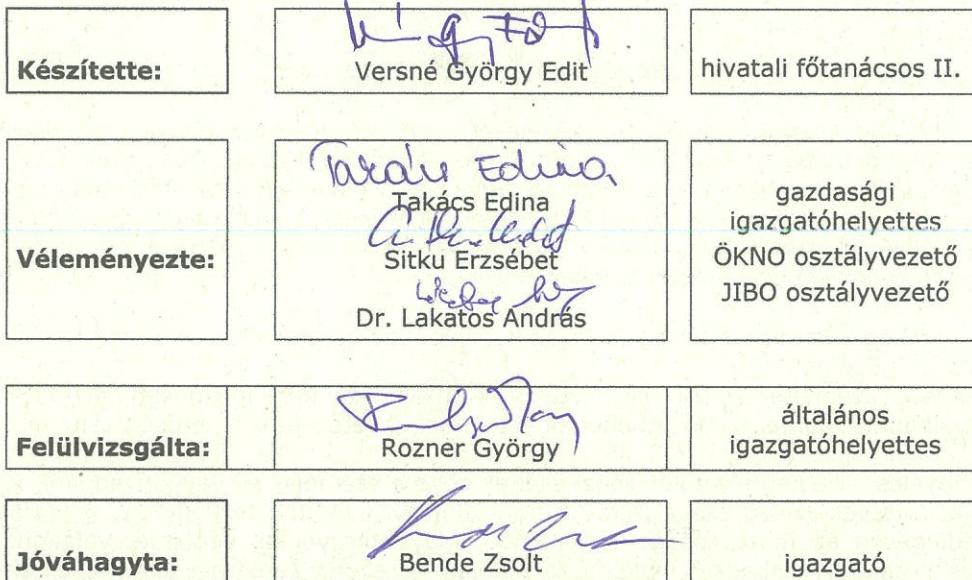 Készítette:
Versné György Edit
hivatali főtanácsos II.
Véleményezte:
Takács Edina
Takács Edina
Sitku Erzsébet
Dr. Lakatos András
gazdasági
igazgatóhelyettes
ÖKNO osztályvezető
JIBO osztályvezető
Felülvizsgálta:
Rozner György
általános
igazgatóhelyettes
Jóváhagyta:
Bende Zsolt
igazgató